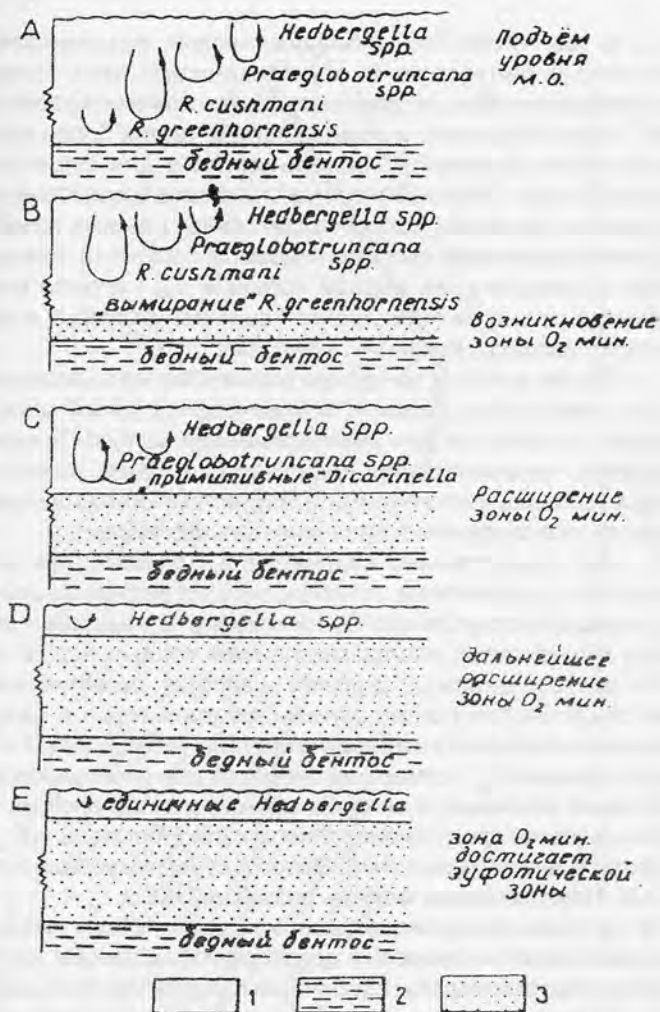 A
Hedbergella
spp.
Praeglobotruncana
spp.
R. cushmani
R. greenhornensis
бедный бентос
Подъём
уровня
м.о.
B
Hedbergella spp.
Praeglobotruncana
spp.
R. cushmani
„вымирание" R. greenhornensis
бедный бентос
возникновение
зоны O₂ мин.
C
Hedbergella spp.
Praeglobotruncana spp.
„примитивные" Dicarinella
бедный бентос
Расширение
зоны O₂ мин.
D
Hedbergella spp.
бедный бентос
дальнейшее
расширение
зоны O₂ мин
E
единичные Hedbergella
бедный бентос
зона O₂ мин.
достигает
эуфотической
зоны
1 2 3